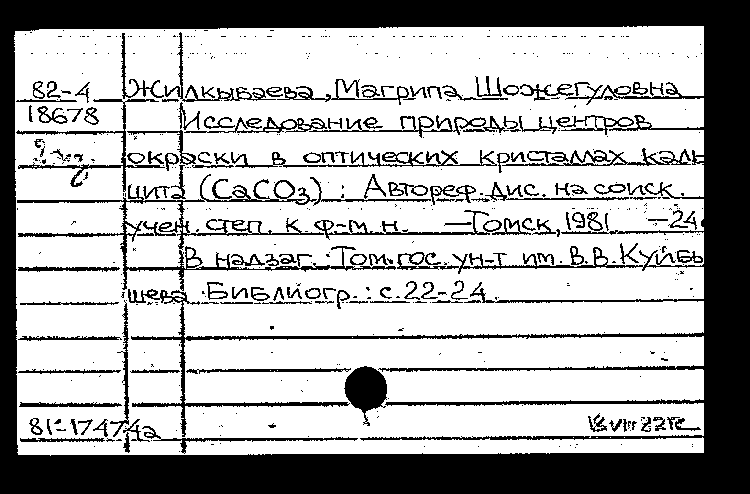 82-4 Жилкыбаева, Магрипа Шожегуловна
18678 Исследование природы центров
окраски в оптических кристаллах каль
цита (CaCO3) : Автореф. дис. на соиск.
учен. степ. к. ф.-м. н. — Томск, 1981 — 24
В надзаг.: Том. гос. ун-т им. В. В. Куйбы
шева. Библиогр.: с. 22-24.
81-17474а